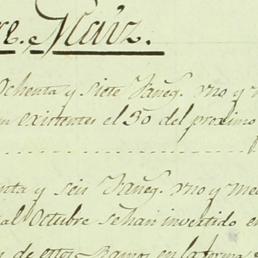 re. Maiz.
Ochenta y siete fañeg. vno y m
n existentes el 30 del proximo
nta y seis fañeg. vno y me
al Octubre se han invertido e
de estos Ramos en la forma s